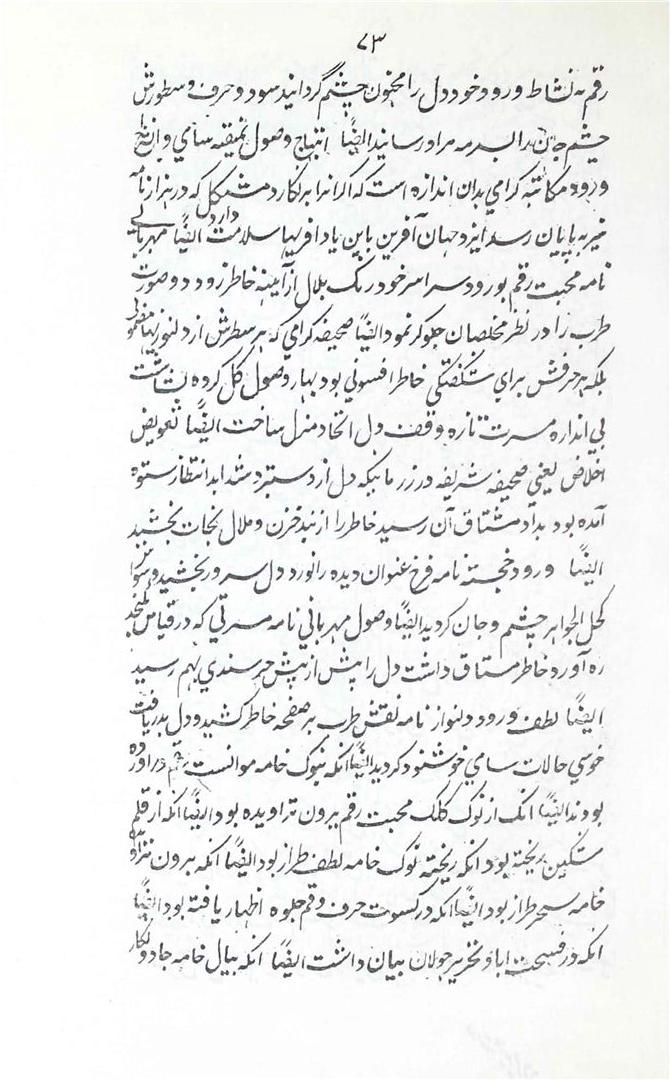 ۷۳
رقم به نشاط ورود خود دل را مخزن چشم گردانید سود و حرف و سطورش
چشم جان را مراد رسانید ایضاً ابتهاج وصول نمیقه سامی و
ورود مکاتبه کرامی بدان اندازه است که اگر انرا برنکارد مشکل که در هزار نامه
نیز به پایان رسد ایزد جهان آفرین باین یاد آفریها سلامت داراد ایضاً مهربانی
نامه محبت رقم بورود سراسر خود رنک ملال از آیینه خاطر زدود و صورت
طرب را در نظر مخلصان جلوکر نمود ایضاً صحیفه کرامی که هر سطرش از دلنوزیها
بلکه هر حرفش برای شکفتکی خاطر افسونی بود بهار وصول کل کرده بشاشت
بی اندازه مسرت تازه وقف دل اتحاد منزل ساخت ایضاً تعویض
اخلاص یعنی صحیفه شریفه در زمانیکه دل از دستبرد شداید انتظار ستوه
آمده بود بداد مشتاق آن رسید خاطر را از بند حزن و ملال نجات بخشید
ایضاً ورود خجسته نامه فرخ عنوان دیده را نور و دل سرور بخشید و
کحل الجواهر چشم و جان کردید ایضاً وصول مهربانی نامه مسرتی که در قیاس نکنجد
ره آورد خاطر مشتاق داشت دل را بیش از پیش خرسندی بهم رسید
ایضاً لطف ورود دلنواز نامه نقش طرب بر صفحه خاطر کشید و دل بدریافت
خوبی حالات سامی خوشنود کردید ایضاً انکه بنوک خامه موانست رقم در آورده
بودند ایضاً انک از نوک کلک محبت رقم بیرون تراویده بود ایضاً انکه از قلم
مشکین ریخته بود انکه ریخته نوک خامه لطف طراز بود ایضاً انکه بیرون تراوده
خامه سحر طراز بود ایضاً انکه در کسوت حرف و رقم جلوه اظهار یافته بود ایضاً
انکه در فسحت اباد تحریر جولان بیان داشت ایضاً انکه ببال خامه جادو نکار